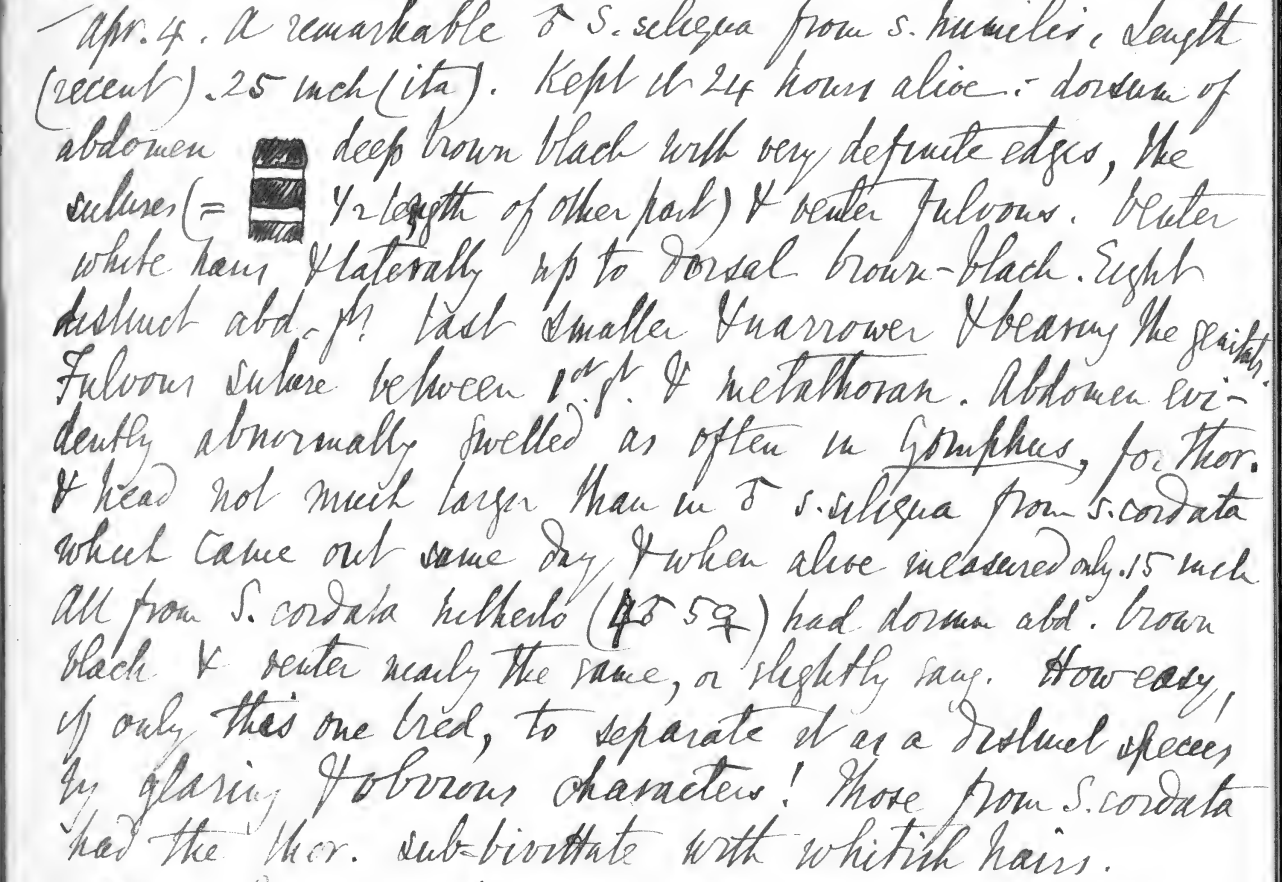 Apr. 4. A remarkable ♂ S. siliqua from S. humilis. Length
(recent) .25 inch (ita). Kept it 24 hours alive :- dorsum of
abdomen deep brown black with very definite edges, the
sutures (= 1/2 length of other part) & venter fulvous. Venter
white hairs & laterally up to dorsal brown-black. Eight
distinct abd. jts last smaller & narrower & bearing the genitals.
Fulvous suture between 1st jt. & metathorax. Abdomen evi-
dently abnormally swelled as often in Gomphus, for thor.
& head not much larger than in ♂ S. siliqua from S. cordata
which came out same day & when alive measured only .15 inch
All from S. cordata hitherto (4♂ 5♀) had dorsum abd. brown
black & venter nearly the same, or slightly sang. How easy,
if only this one bred, to separate it as a distinct species
by glaring & obvious characters! Those from S. cordata
had the thor. sub-bivittate with whitish hairs.